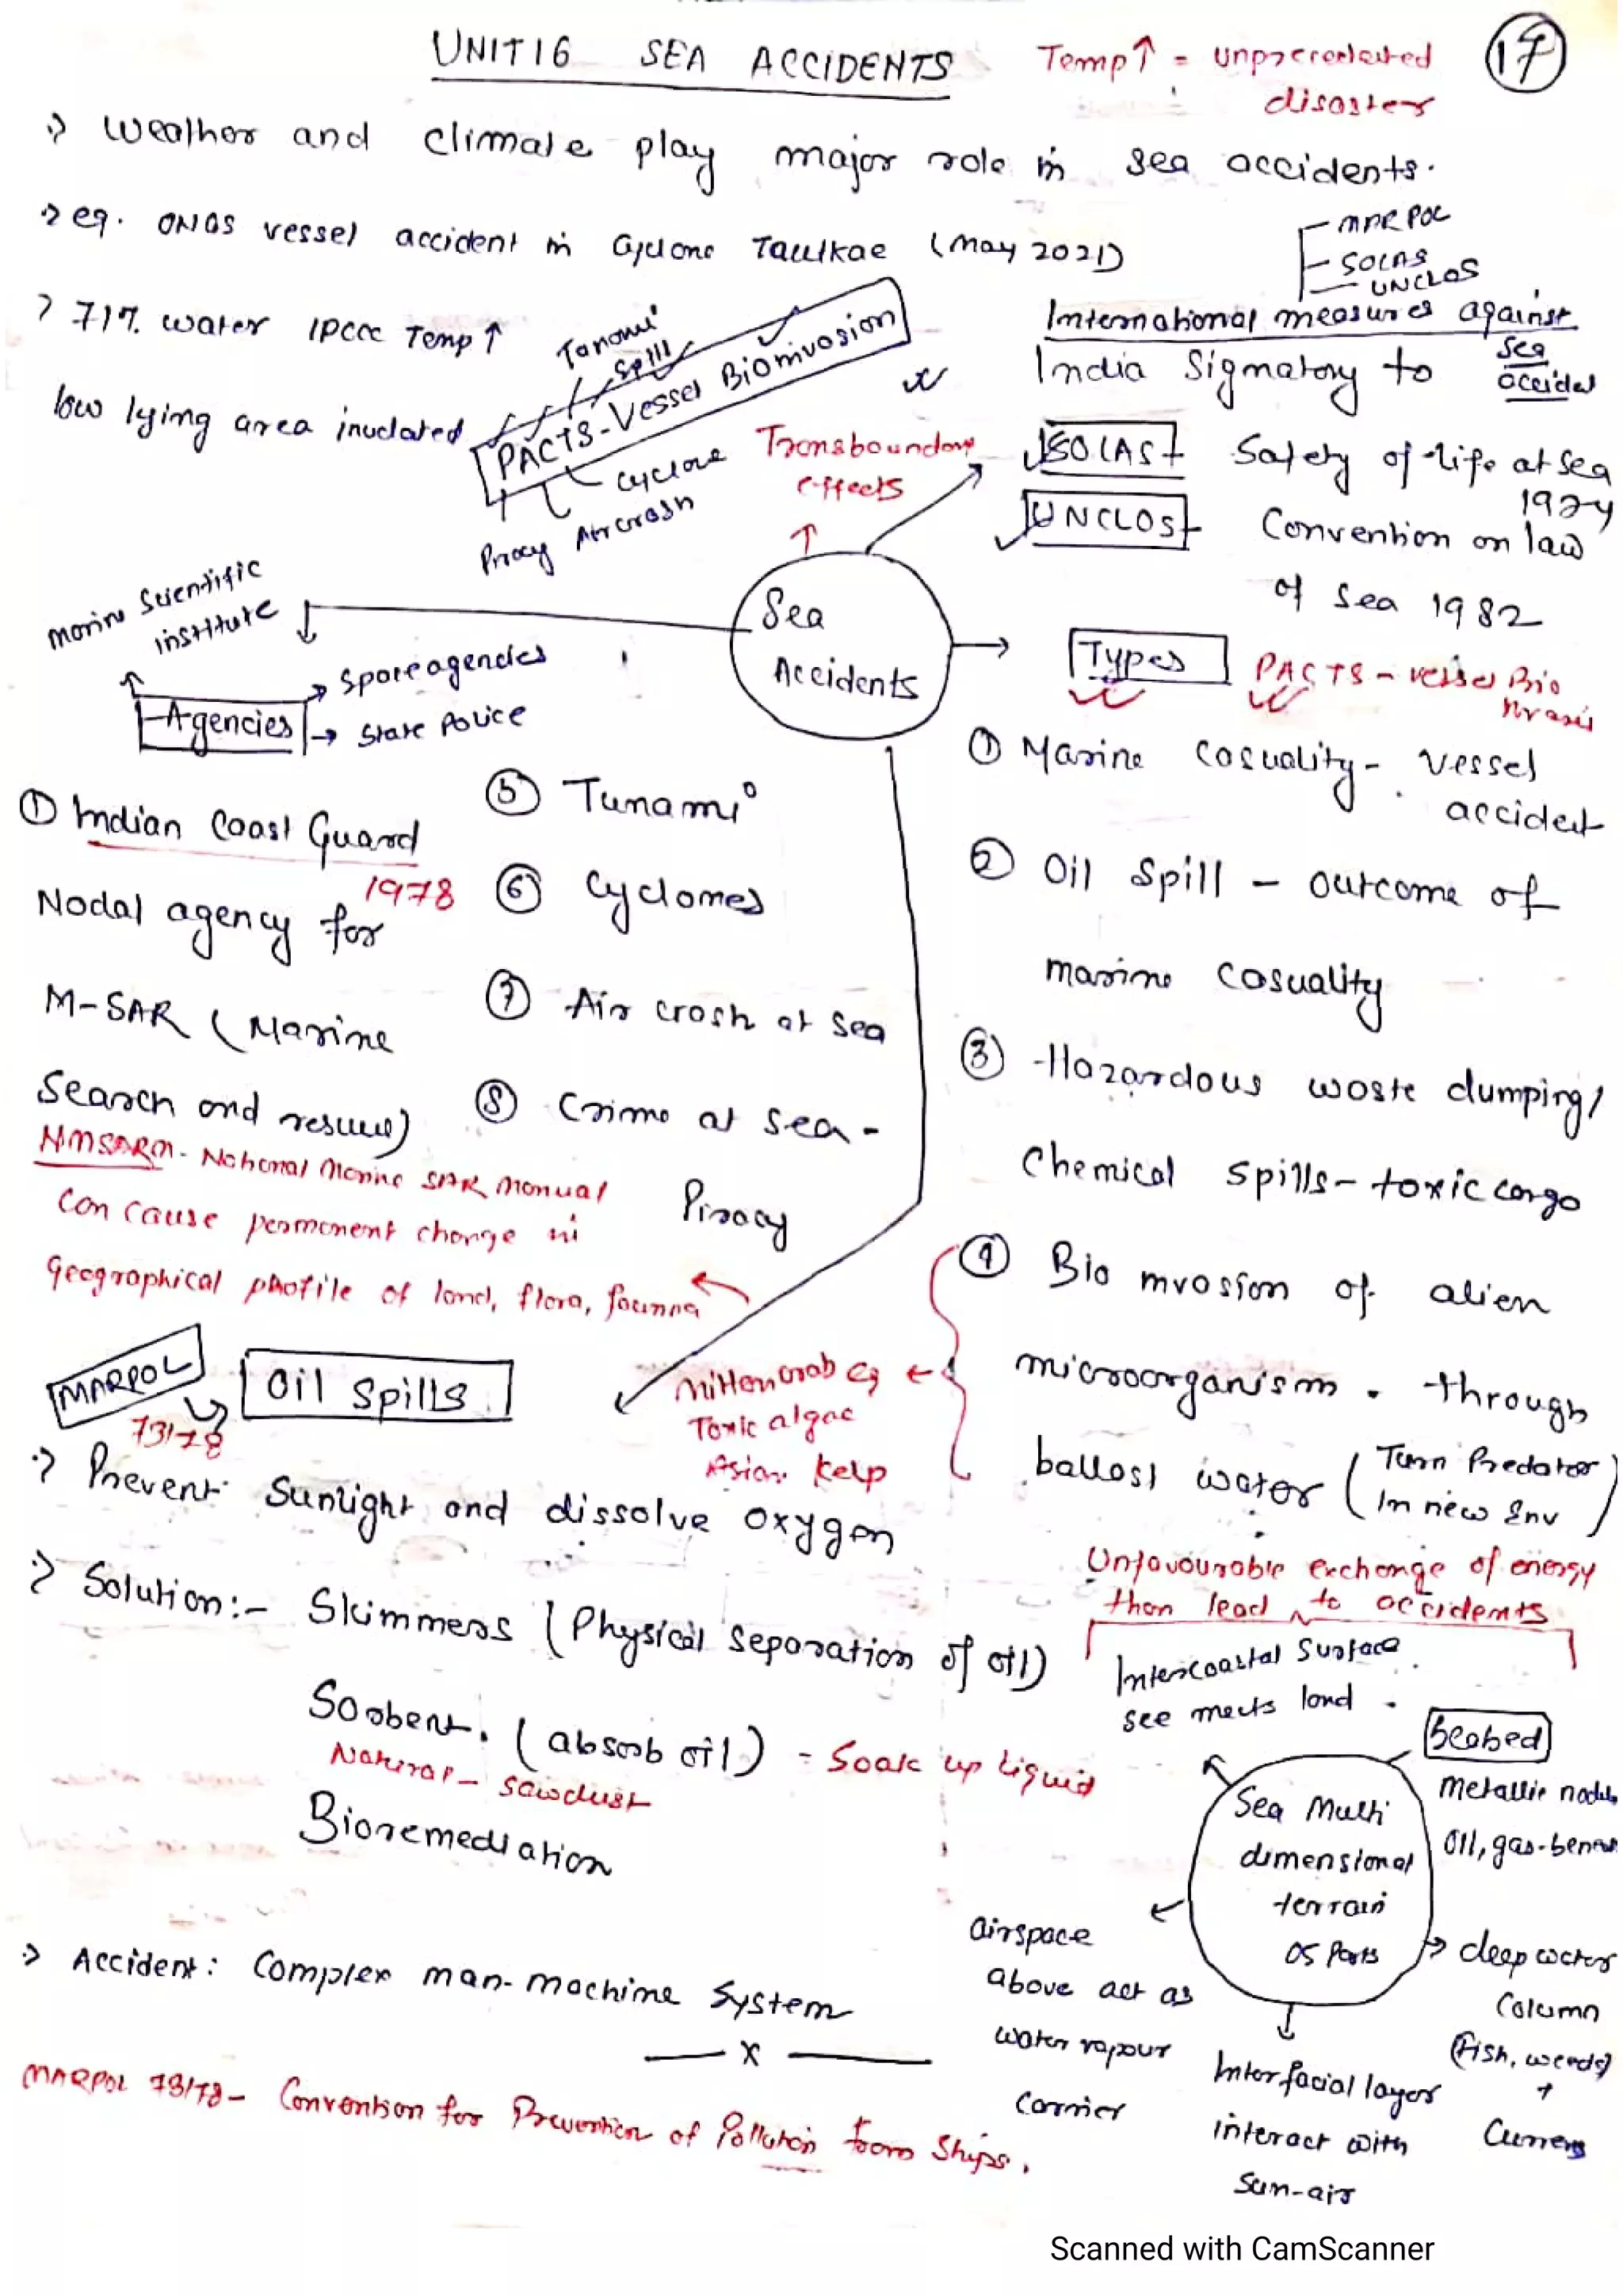 UNIT 16 SEA ACCIDENTS
Temp↑ = unprecedented
disaster
17
weather and climate play major role in sea accidents.
eg. ONGS vessel accident in Cyclone Taulkae (May 2021)
71% water IPCCC Temp ↑
low lying area inudated
Tsnomi
Spill
PACTS-Vessel Bioinvasion
Cyclone
Air crash
Piracy
Transboundary
effects
MARPOL
SOLAS
UNCLOS
International measures against
sea
India Signatory to
SOLAS Safety of life at sea
UNCLOS Convention on law
of sea 1982
Marine Scientific
institute
Agencies
State Police
Sea
Accidents
Types
PACTS - vessel Bio
① Indian Coast Guard
1978
Nodal agency for
M-SAR (Marine
Search and resuue)
NMSARM - National Marine SAR Manual
Can cause permanent change in
geographical phofile of land, flora, faunna
⑤ Tunami
⑥ Cyclones
⑦ Air crash at Sea
⑧ Crime at Sea -
Piracy
① Marine Casuality - Vessel
accident
② Oil Spill - outcome of
marine casuality
③ Hazardous waste dumping/
Chemical spills - toxic cargo
④ Bio invasion of alien
microorganism. through
ballast water (Turn Predator
In new Env)
Mitten crab eg
Toxic algae
Asian kelp
MARPOL
73/78
Oil Spills
Prevent Sunlight and dissolve oxygen
Solution:- Skimmers (Physical Separation of oil)
Sorbent. (absorb oil) = Soak up liquid
Natural - sawdust
Bioremediation
Accident: Complex man-machine System
x
MARPOL 73/78 - Convention for Prevention of Pollution from Ships.
Unfavourable exchange of energy
than lead to accidents
Intercoastal Surface
see meets land
Seabed
Metallic
Oil, gas
Sea Multi
dimensional
terrain
05 Parts
airspace
above act as
water vapour
Carrier
Interfacial layer
interact with
Sun-air
deep water
Column
(Fish, weeds)
+
Scanned with CamScanner